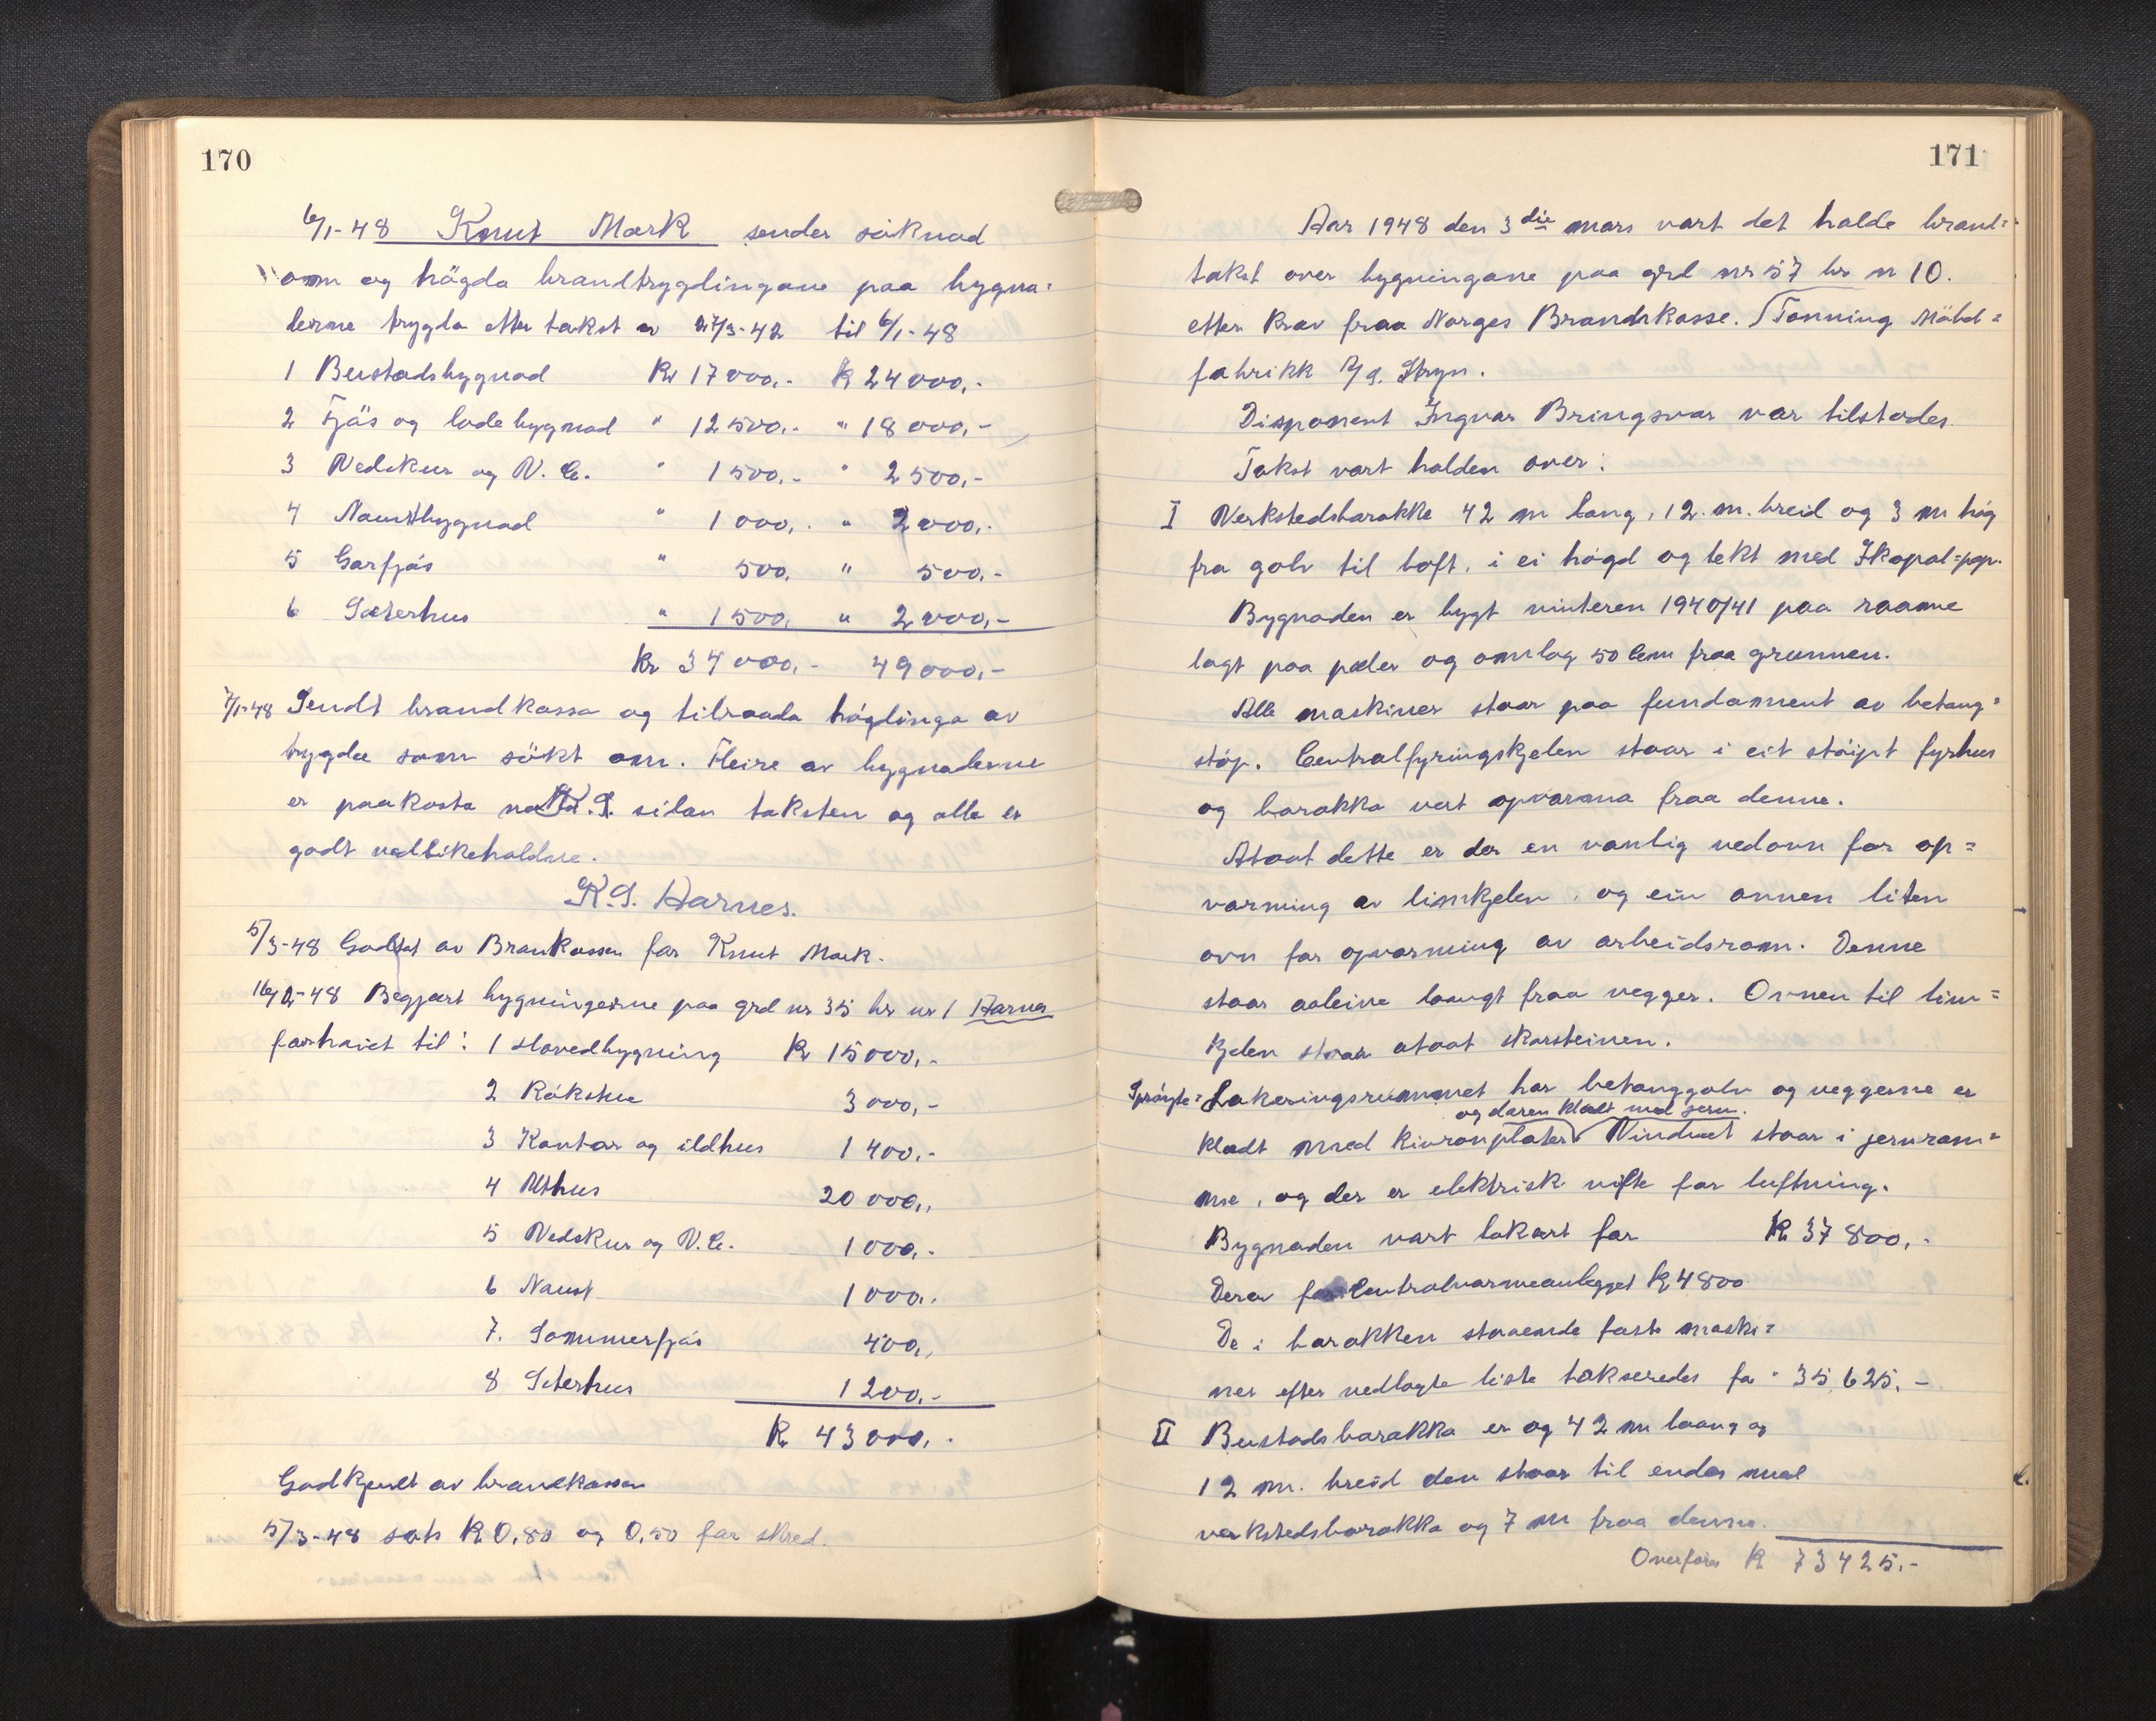 170
6/1-48 Knut Mark sender søknad
om og högda brandtrygdingane paa bygna=
derne trygda etter takst av 27/3-42 til 6/1-48
1 Bustadsbygnad Kr 17000,- K 24000,-
2 Fjäs og lodebygnad " 12500,- " 18000,-
3 Vedskur og V. C. " 1500,- " 2500,-
4 Naustbygnad " 1000,- " 2000,-
5 Garfjös " 500, " 500,-
6 Sæterhus " 1500, " 2000,-
Kr 34000,- 49000,-
7/1-48 Sendt brandkassa og tilraada högdinga av
trygda som sökt om. Fleire av bygnaderne
er paakosta sidan taksten og alle er
godt vedlikeholdne.
K. S. Aarnes.
5/3-48 Godtat av Brankassen for Knut Mark.
16/2-48 Begjært bygningerne paa grd nr 35 br nr 1 Aarnes
forhøiet til: 1 Hovedbygning Kr 15000,-
2 Rökstue 3000,-
3 Kontor og ildhus 1400,-
4 Uthus 20000,,
5 Vedskur og V.C. 1000,-
6 Naust 1000,.
7. Sommerfjös 400,,
8 Seterhus 1200,-
K. 43000,-
Godkjendt av brandkassen
5/3-48 sats K 0,80 og 0,50 for skred.
171
Aar 1948 den 3die mars vart det halde brand=
takst over bygningane paa grd nr 57 br n 10.
etter krav fraa Norges Brandkasse. (Tonning Möbel=
fabrikk A/S. Stryn.
Disponent Ingvar Bringsvor var tilstades.
Takst vart halden over:
I Verkstedsbarakke 42 m lang, 12. m. breid og 3 m høg
fra golv til loft, i ei høgd og tekt med Ikopal=pap.
Bygnaden er bygt vinteren 1940/41 paa raame
lagt paa pæler og omlag 50 Cem fraa grunnen.
Alle maskiner staar paa fundament av betong=
støp. Centralfyringskjelen staar i eit støipt fyrhus
og barakka vert opvarma fraa denne.
Ataat dette er der en vanlig vedovn for op=
varming av limkjelen, og ein annen liten
ovn for opvarming av arbeidsrom. Denne
staar aaleine langt fraa vegger. Ovnen til lim=
kjelen staar ataat skorsteinen.
Sprøyte=Lakeringsrummet har betonggolv og veggerne er
og døren klædt med jern.
klædt med kivronplater Vinduet staar i jernram=
me, og der er elektrisk vifte for luftning.
Bygnaden vart taksert for K 37800,-
Derav for Centralvarmeanlegget K 4800
De i barakken staaende faste maski=
ner efter vedlagte liste takseredes for " 35,625,-
II Bustadsbarakka er og 42 m laang og
12 m. breid den staar til endes med
verkstedsbarakka og 7 m fraa denne.
Overføres K 73425,-